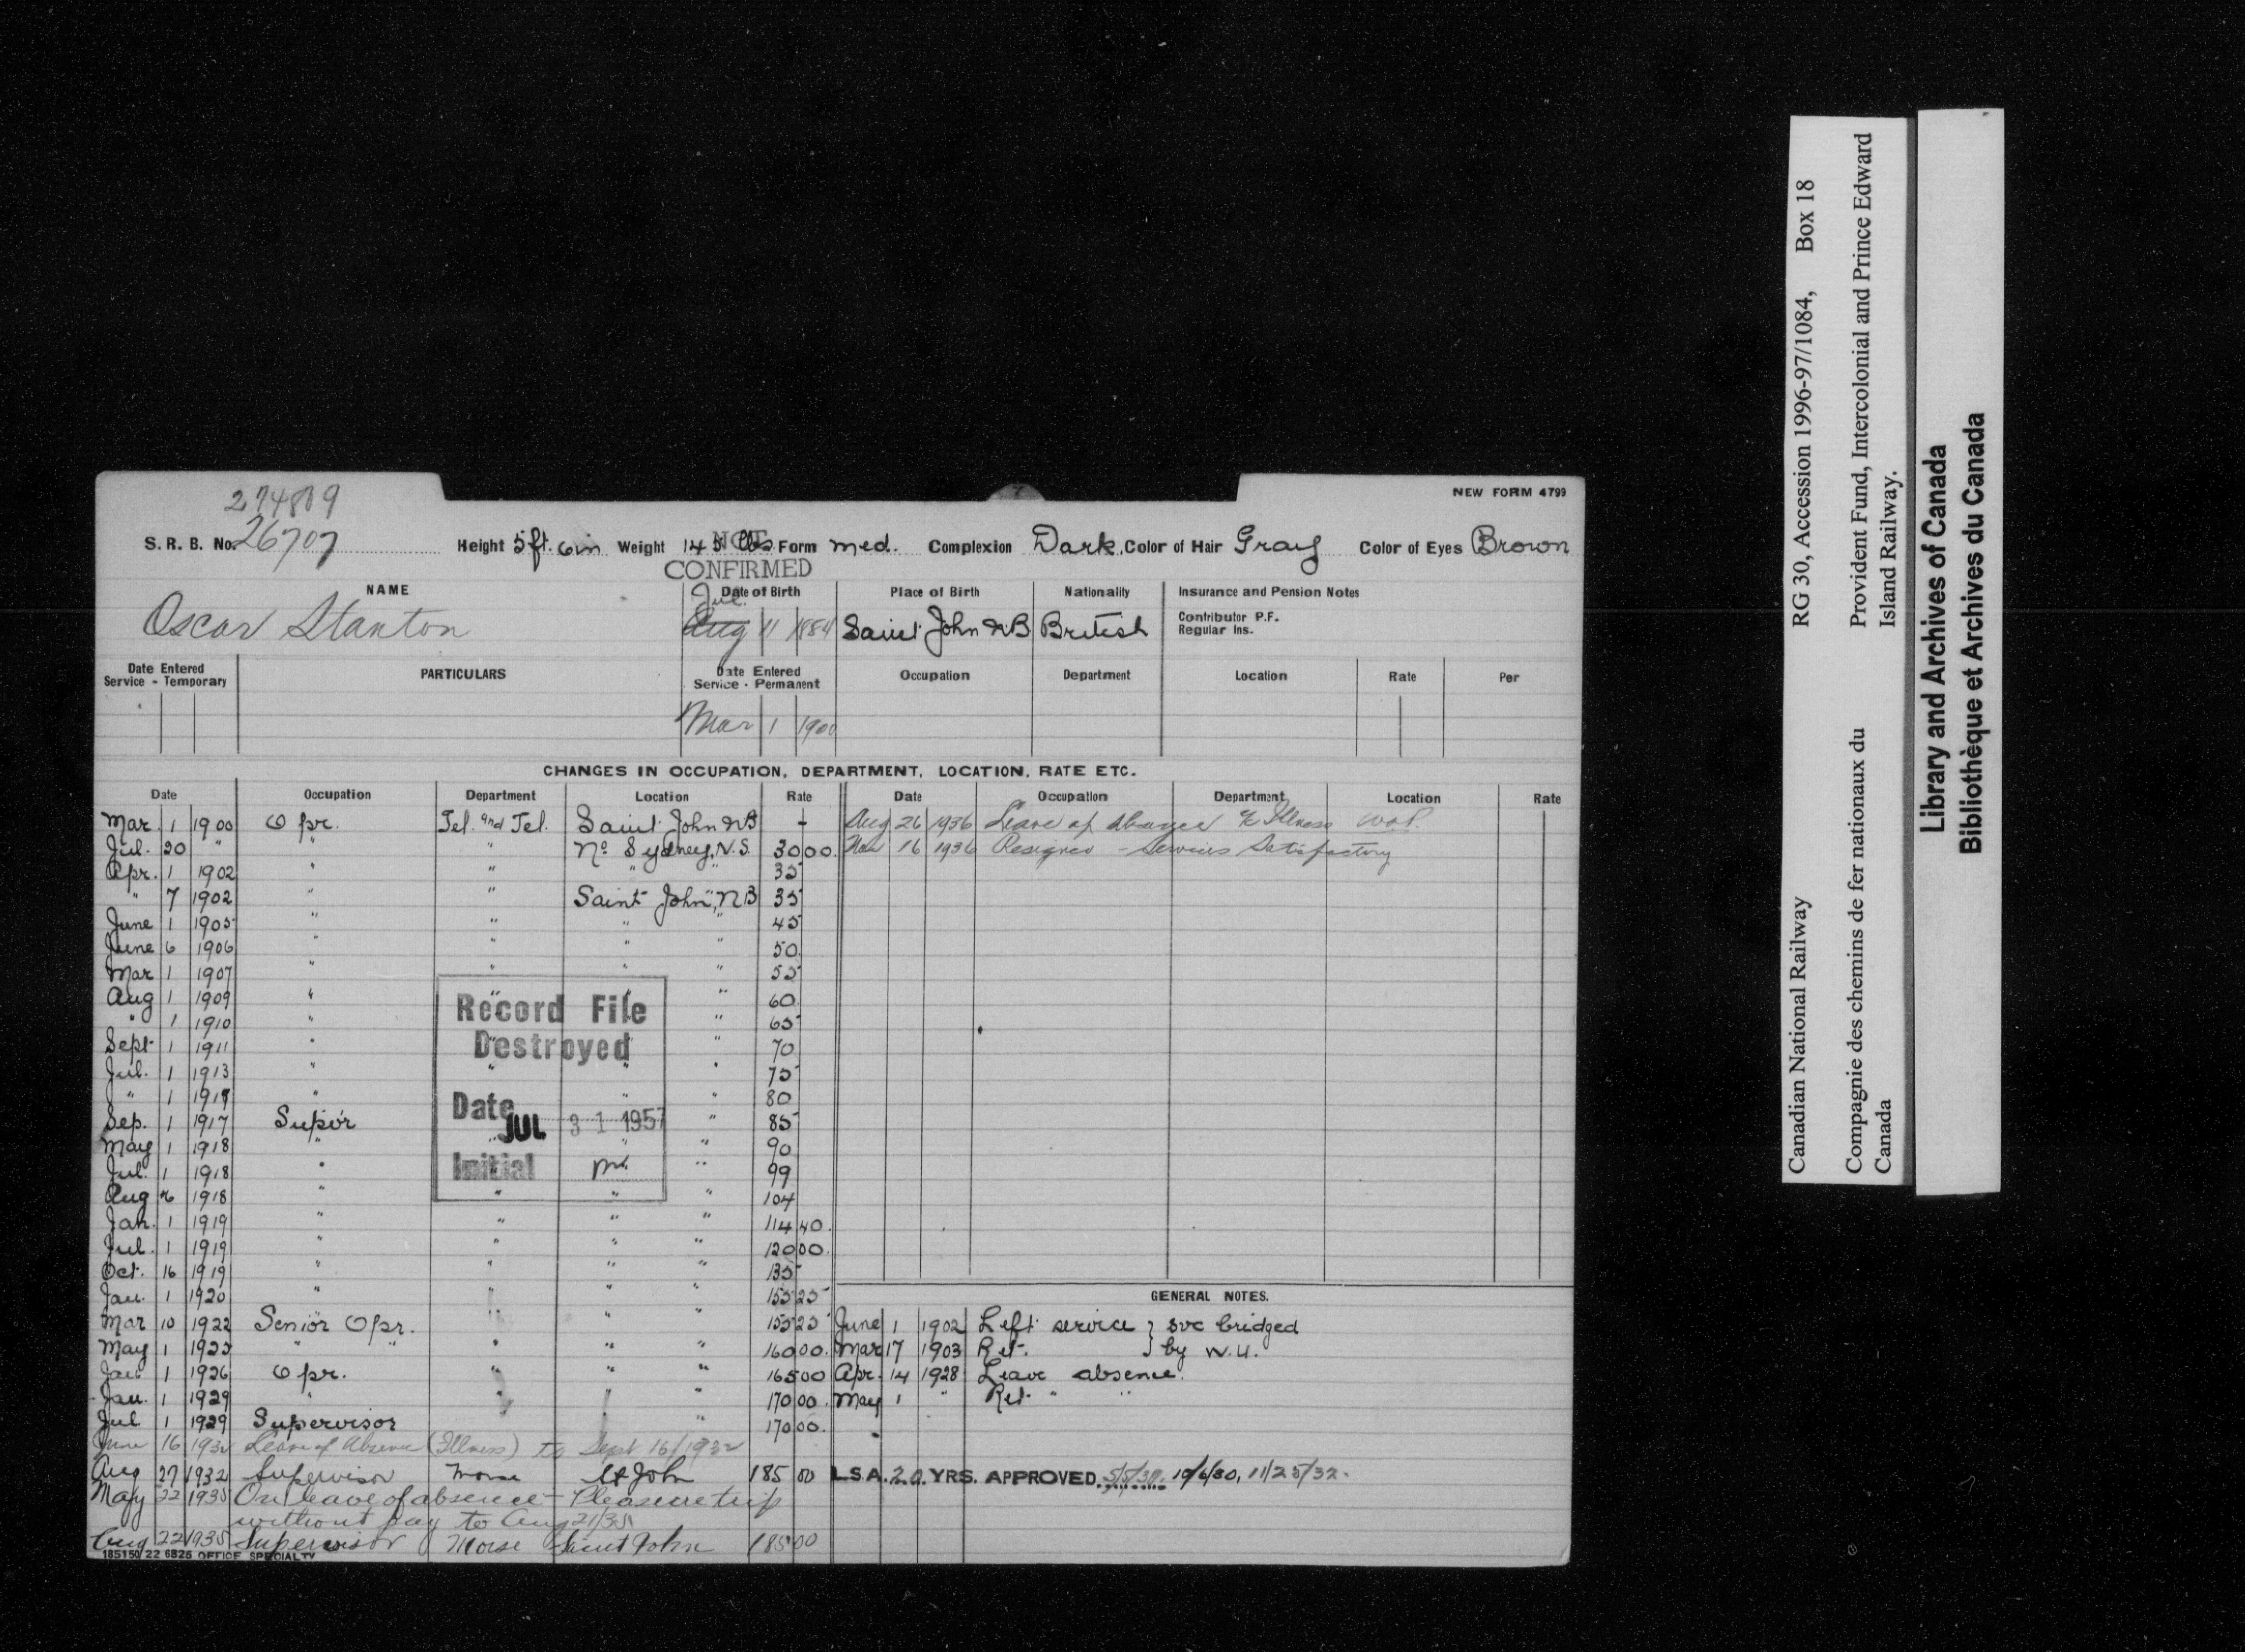 274809
NEW FORM 4799
S. R. B. No. 26707 Height 5ft. 6in Weight 145 lbs Form med. Complexion Dark Color of Hair Gray Color of Eyes Brown
NOT
CONFIRMED
NAME Date of Birth Place of Birth Nationality Insurance and Pension Notes
Jul.
Oscar Stanton Aug 11 1884 Saint John NB British
Contributor P.F.
Regular Ins.
Date Entered Service - Temporary PARTICULARS Date Entered Service - Permanent Occupation Department Location Rate Per
Mar 1 1900
CHANGES IN OCCUPATION, DEPARTMENT, LOCATION, RATE ETC.
Date Occupation Department Location Rate Date Occupation Department Location Rate
Mar. 1 1900 Opr. Tel. and Tel. Saint John NB - Aug 26 1936 Leave of absence a/c Illness WOP.
Jul. 20 " " " No Sydney, N.S. 30 00 Nov 16 1936 Resigned - Services Satisfactory
Apr. 1 1902 " " " " 35
" 7 1902 " " Saint John, NB 35
June 1 1905 " " " " 45
June 6 1906 " " " " 50
Mar 1 1907 " " " " 55
Aug 1 1909 " " " " 60
" 1 1910 " " 65
Sept 1 1911 " " " " 70
Jul. 1 1913 " " " " 75
" 1 " " " 80
Sep. 1 1917 Supór " 85
May 1 1918 " " " " 90
Jul. 1 1918 " " 99
Aug 1918 " " " " 104
Jan. 1 1919 " " " " 114 40
Jul. 1 1919 " " " " 120 00
Oct. 16 1919 " " " " 135
Jan. 1 1920 " " " " 155 25
Mar 10 1922 Senior Opr. " " " 155 25
May 1 1925 " " " " " 160 00
Jan 1 1926 Opr. " " " 165 00
Jan. 1 1929 " " " " 170 00
Jul 1 1929 Supervisor " 170 00
June 16 1932 Leave of Absence (Illness) to Sept 16/1932
Aug 27 1932 Supervisor Morse St John 185 00
May 22 1935 On leave of absence - Pleasure trip
without pay to Aug 21/35
Aug 22 1935 Supervisor Morse Saint John 185 00
185150 22 6825 OFFICE SPECIALTY
Record File
Destroyed
Date JUL 31 1957
Initial
GENERAL NOTES.
June 1 1902 Left service } svc bridged
Mar 17 1903 Ret. } by W.U.
Apr. 14 1928 Leave absence.
May 1 " Ret " "
L.S.A. 20 YRS. APPROVED. 5/5/30. 10/6/30, 11/25/32.
Canadian National Railway RG 30, Accession 1996-97/1084, Box 18
Compagnie des chemins de fer nationaux du Canada
Provident Fund, Intercolonial and Prince Edward Island Railway.
Library and Archives of Canada
Bibliothèque et Archives du Canada